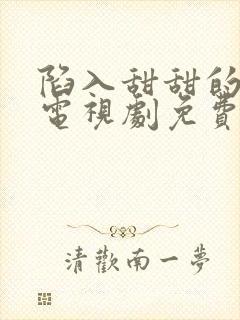 陷入甜甜的
電視劇免費
清歡南一夢